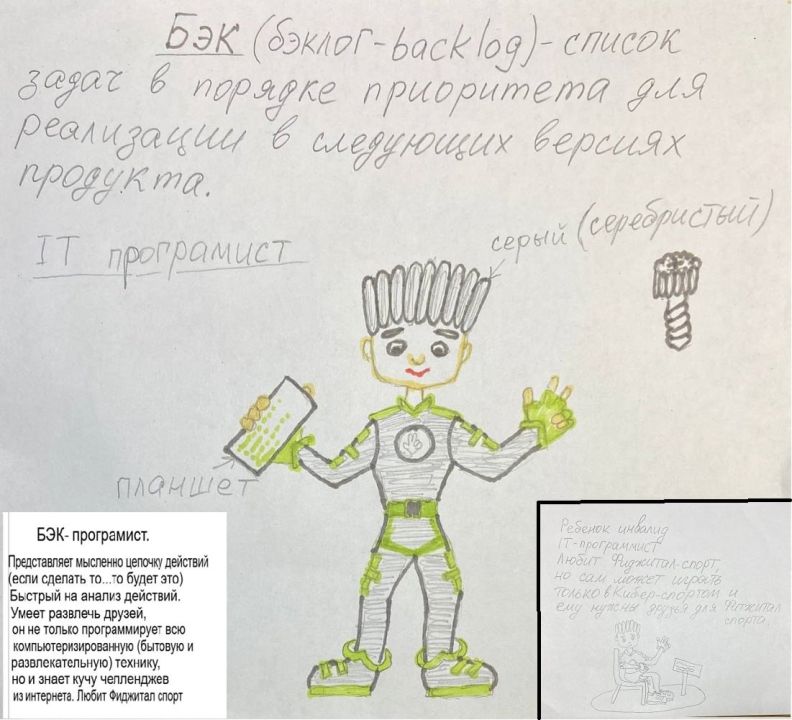 Бэк (бэклог-backlog)-список
задач в порядке приоритета для
реализации в следующих версиях
продукта.
IT програмист
серый (серебристый)
планшет
БЭК- програмист.
Представляет мысленно цепочку действий
(если сделать то...то будет это)
Быстрый на анализ действий.
Умеет развлечь друзей,
он не только программирует всю
компьютеризированную (бытовую и
развлекательную) технику,
но и знает кучу челленджев
из интернета. Любит Фиджитал спорт
Ребенок инвалид
IT-программист
Любит Фиджитал-спорт,
но сам может играть
только в Кибер-спортом и
ему нужны друзья для Фиджитал
спорта.